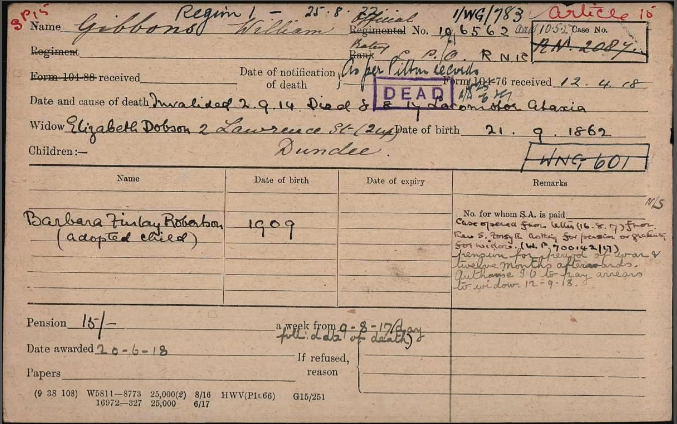 SP15 Region 1 - 25.8.22 Official 1/WG/783 Article 15
Name Gibbons William Regimental No. 196562 Case No.
Regiment Rating Rank C.P.O R.N.R R.N. 2087
Form 104-88 received Date of notification of death As per Pillar records Form 104-76 received 12.4.18
DEAD
Date and cause of death Invalided 2.9.14 Died 8.8.17 Locomotor Ataxia
Widow Elizabeth Dobson 2 Lawrence St (2up) Date of birth 21.9.1862
Children:— Dundee. WNG 601
Name Date of birth Date of expiry Remarks
N/S
No. for whom S.A. is paid
Barbara Finlay Robertson 1909
(adopted child)
Case opened from letter (16.8.17) from
S. Forsyth asking for pension or gratuity
for widow. (W.P. 700142/17)
pension for period of war &
twelve months afterwards.
Authorise I.O to pay arrears
to widow. 12-9-18.
Pension 15/- a week from 9-8-17 (day
foll. date of death)
Date awarded 20-6-18 If refused,
reason
Papers
(9 38 108) W5811—8773 25,000(2) 8/16 HWV(P1666) G15/251
16972—327 25,000 6/17